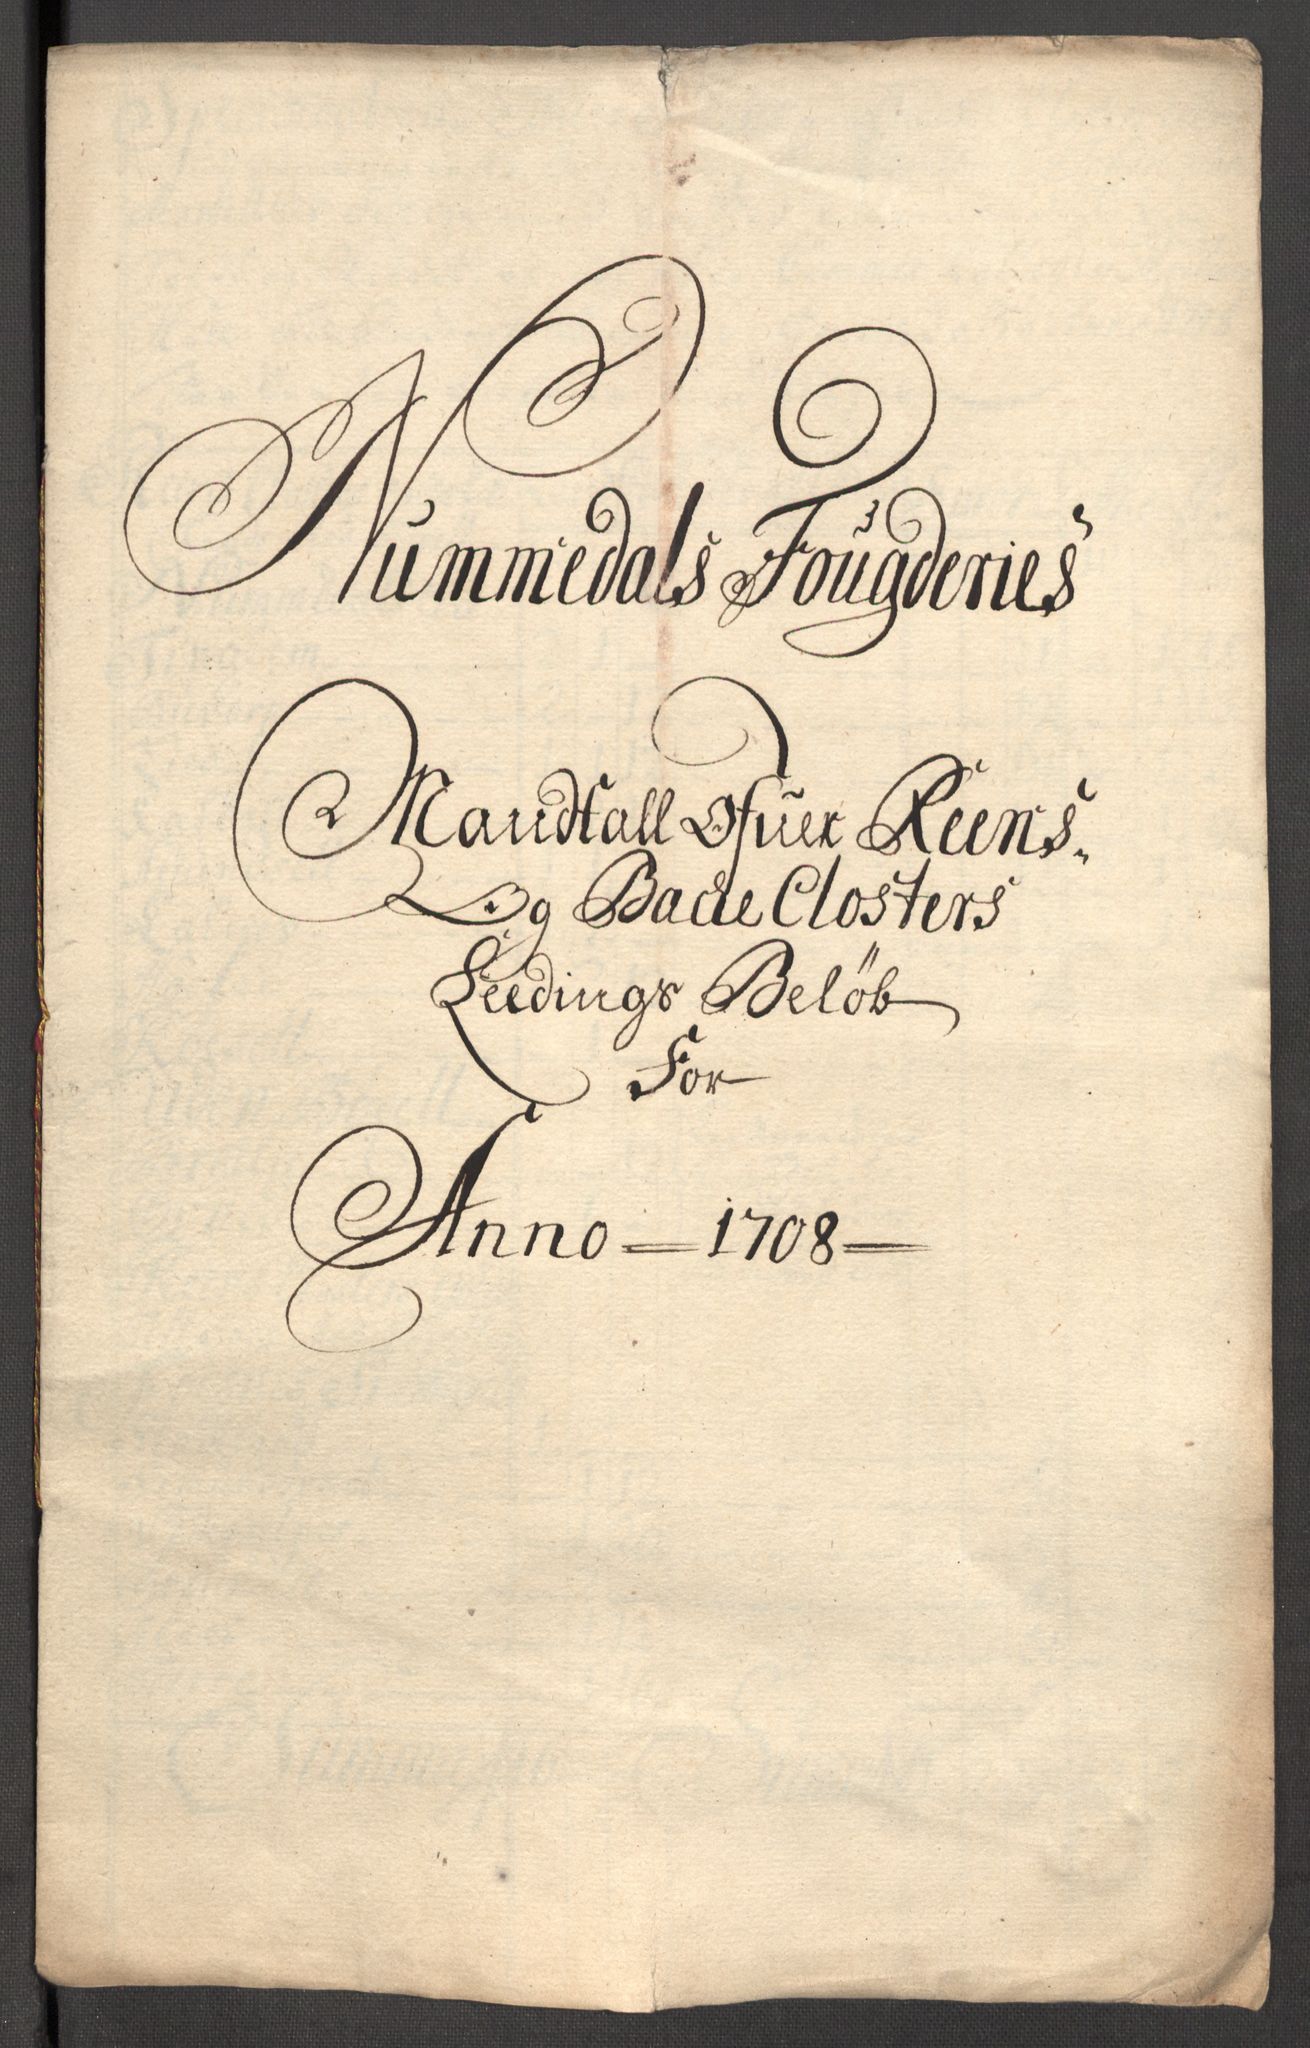 Nummedals Fougderies
Mandtall Ofuer Reens-
Og Backe Closters
Leedings Beløb
For
Anno — 1708 —